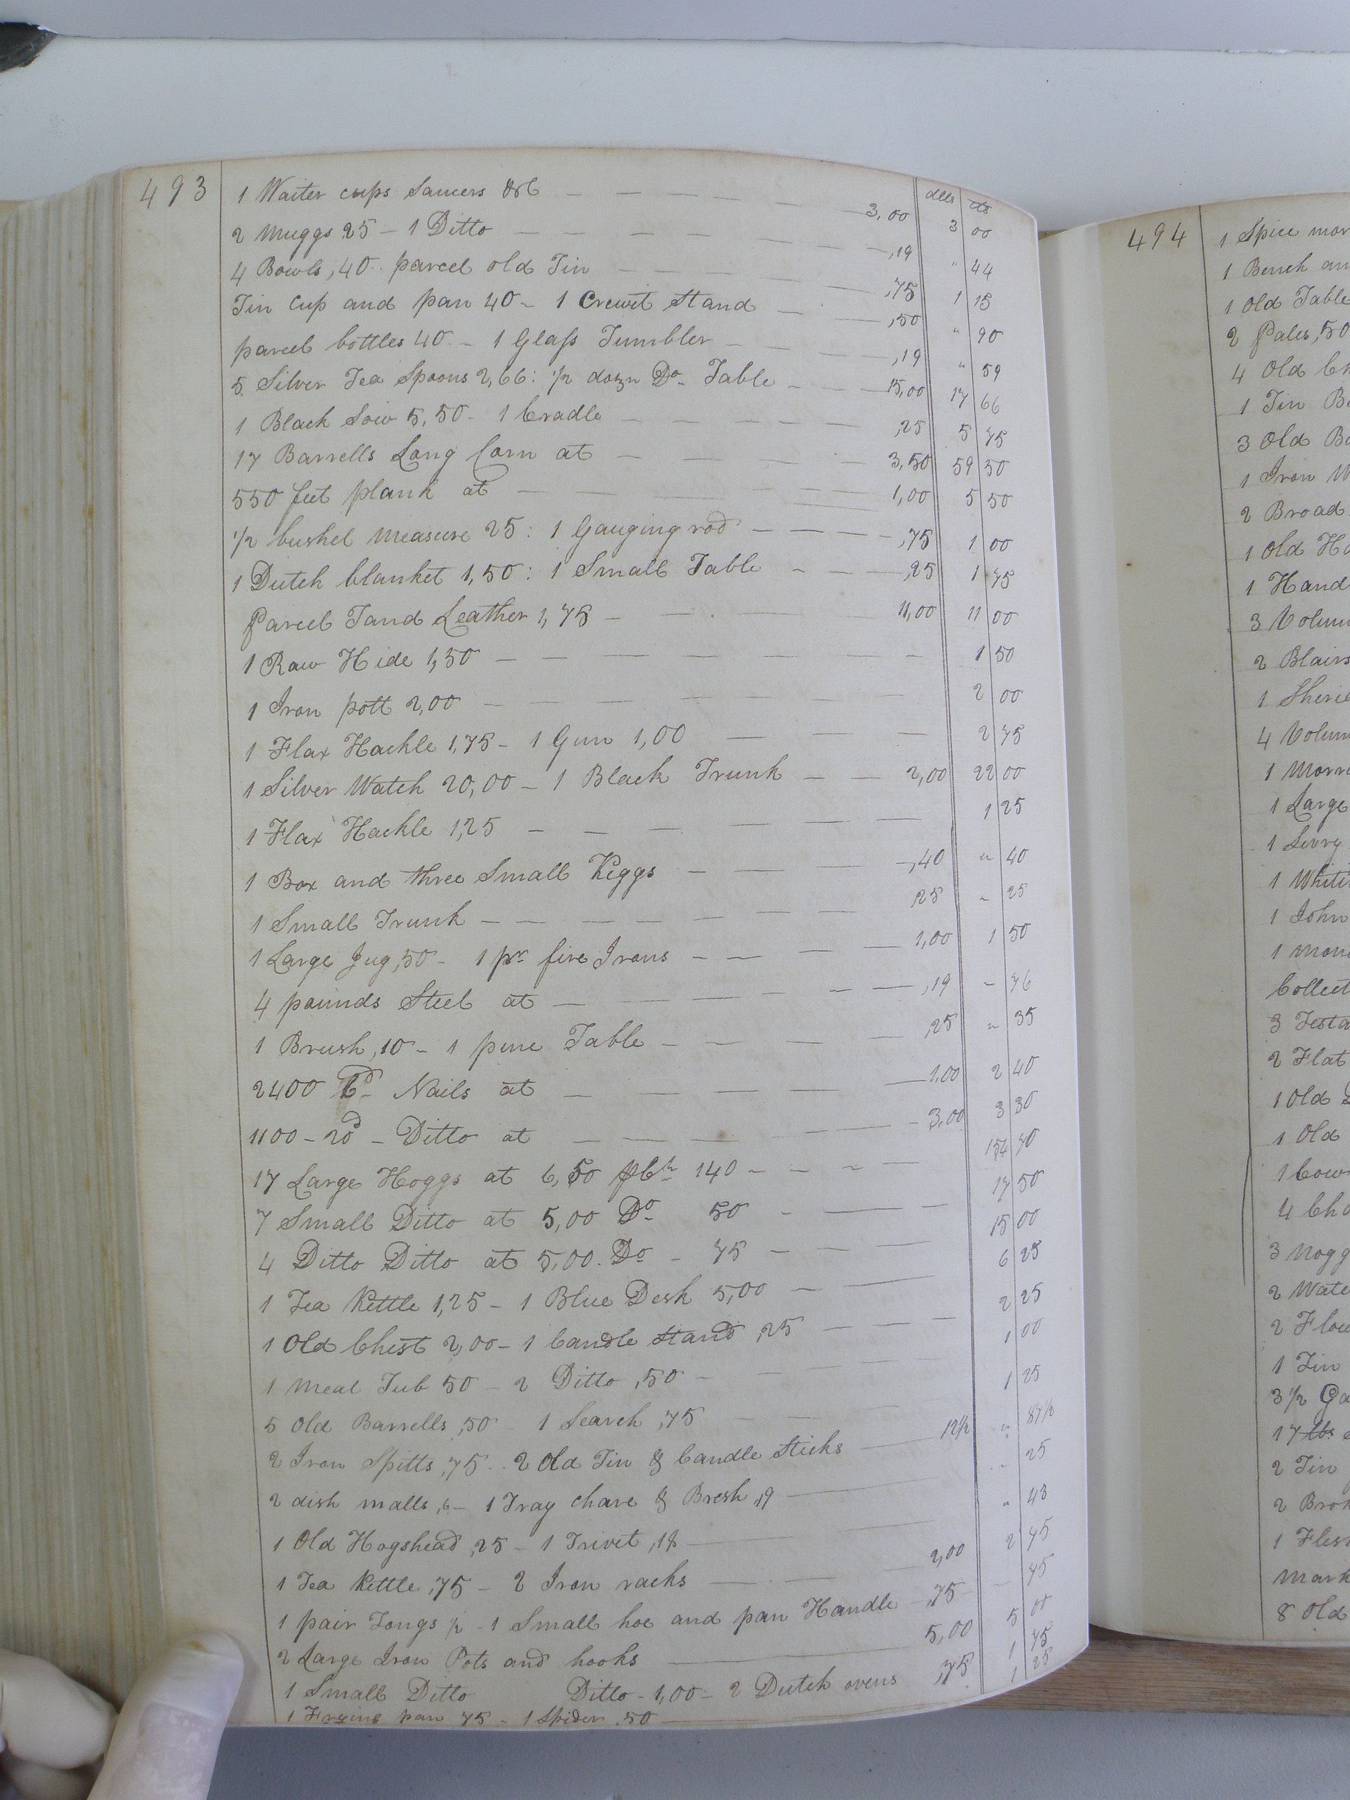 493
dlls cts
1 Waiter cups Saucers &c — 3,00 3 00
2 Muggs 25 – 1 Ditto — ,19 " 44
4 Bowls, 40 parcel old Tin — ,75 1 15
Tin Cup and pan 40 – 1 Crewit Stand — ,50 " 90
parcel bottles 40 – 1 Glass Tumbler — ,19 " 59
5 Silver Tea Spoons 2,66: 1/2 dozn Do Table — 15,00 17 66
1 Black Sow 5,50 – 1 Cradle — ,25 5 75
17 Barrells Long Corn at — 3,50 59 50
550 feet plank at — 1,00 5 50
1/2 bushel measure 25: 1 Gauging rod — ,75 1 00
1 Dutch blanket 1,50: 1 Small Table — ,25 1 75
Parcel Tand Leather 1,75 — 11,00 11 00
1 Raw Hide 1,50 — 1 50
1 Iron pott 2,00 — 2 00
1 Flax Hackle 1,75 – 1 Gun 1,00 — 2 75
1 Silver Watch 20,00 – 1 Black Trunk — 2,00 22 00
1 Flax Hackle 1,25 — 1 25
1 Box and three Small Kiggs — ,40 " 40
1 Small Trunk — ,25 " 25
1 Large Jug ,50 – 1 pr fire Irons — 1,00 1 50
4 pounds Steel at — ,19 " 76
1 Brush ,10 – 1 pine Table — ,25 " 35
2400 6d Nails at — 1,00 2 40
1100 – 20d – Ditto at — 3,00 3 30
17 Large Hoggs at 6,50 pCt 140 – 154 70
7 Small Ditto at 5,00 Do 50 – 17 50
4 Ditto Ditto at 5,00 Do – 75 — 15 00
1 Tea Kettle 1,25 – 1 Blue Desk 5,00 – 6 25
1 Old Chest 2,00 – 1 Candle Stand ,25 — 2 25
1 Meal Tub 50 – 2 Ditto ,50 – 1 00
5 Old Barrells ,50 1 Search ,75 1 25
2 Iron Spitts ,75 2 Old Tin & Candle Sticks — 12 1/2 " 87 1/2
2 dish matts ,6 – 1 Tray Chare & Bresh ,19 — 25
1 Old Hogshead ,25 – 1 Trivet ,18 — " 43
1 Tea Kettle ,75 – 2 Iron racks — 2,00 2 75
1 pair Tongs – 1 Small hoe and pan Handle ,75 75
2 Large Iron Pots and hooks — 5,00 5 00
1 Small Ditto Ditto – 1,00 – 2 Dutch ovens ,75 1 75
1 Frying pan 75 – 1 Spider ,50 — 1 25
494
1 Spice
1 Bench
1 Old Table
2 Pales ,50
4 Old
1 Tin
3 Old
1 Iron
2 Broad
1 Old
1 Hand
3
2 Blairs
1
4
1
1 Large
1
1
1 John
1
Collect
3
2 Flat
1 Old
1 Old
1 Cow
4
3 Nogg
2
2
1 Tin
3 1/2
17 lbs
2 Tin
2
1
Mark
8 Old